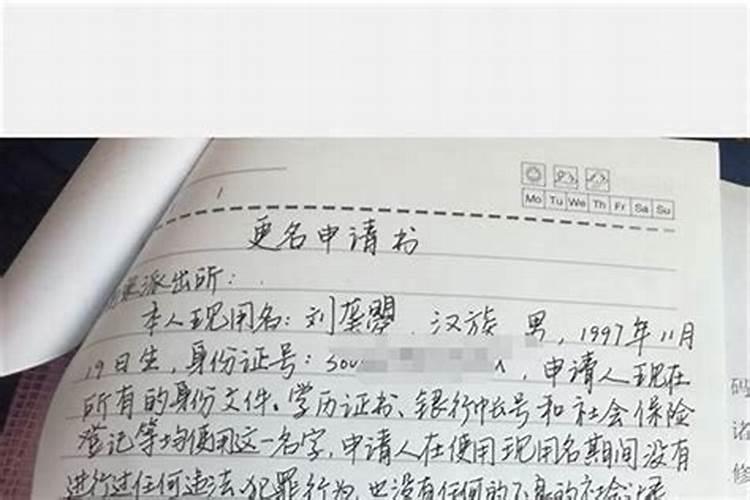 Mo Tu We Th Fr Sa Su
更名申请书
派出所：
本人现用名：刘 汉族 男，1997年11月
19日生，身份证号：500，申请人现在
所有的身份文件、学历证书、银行帐号和社会保险
登记等均使用这一名字，申请人在使用现用名期间没有
进行过任何违法、犯罪行为，也没有任何的不良的社会
码
诸
修